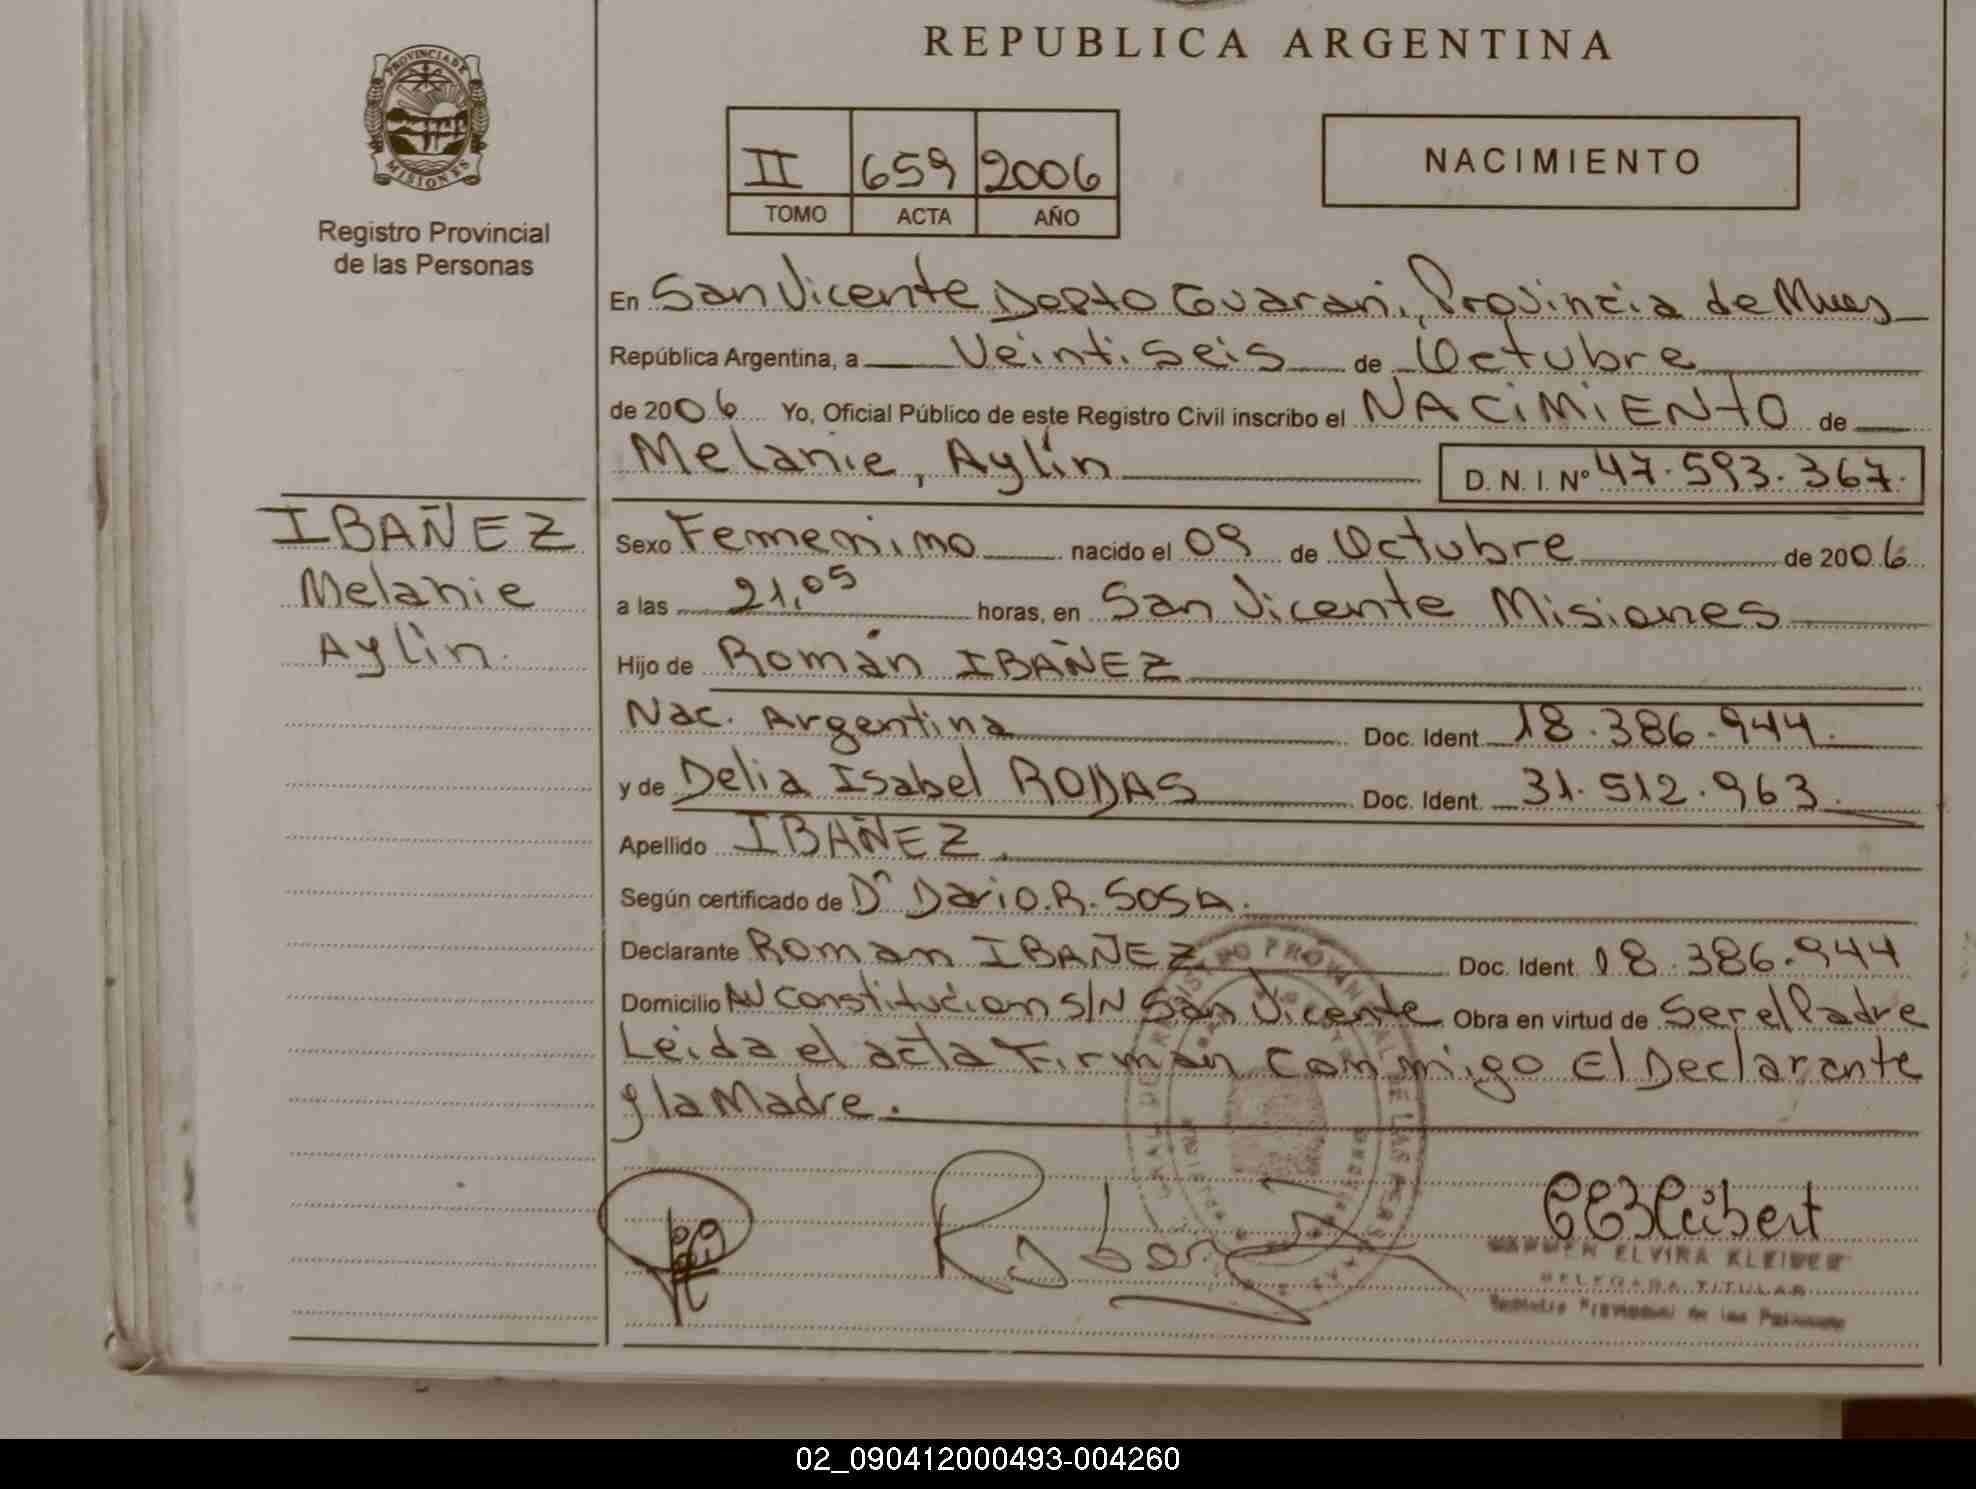 REPUBLICA ARGENTINA
PROVINCIA DE
MISIONES
Registro Provincial
de las Personas
II 659 2006
TOMO ACTA AÑO
NACIMIENTO
En San Vicente Depto Guarani, Provincia de Mnes
República Argentina, a Veintiseis de Octubre
de 2006 Yo, Oficial Público de este Registro Civil inscribo el NACIMIENTO de
Melanie, Aylín D. N. I. Nº 47.593.367.
IBAÑEZ
Melanie
Aylín.
Sexo Femenino nacido el 09 de Octubre de 2006
a las 21,05 horas, en San Vicente Misiones
Hijo de Román IBAÑEZ
Nac. Argentina Doc. Ident. 18.386.944.
y de Delia Isabel RODAS Doc. Ident. 31.512.963.
Apellido IBAÑEZ.
Según certificado de Dr Dario.R.SOSA.
Declarante Roman IBAÑEZ Doc. Ident. 18.386.944
Domicilio AV Constitucion S/N San Vicente Obra en virtud de Ser el Padre
Leida el acta Firman conmigo El Declarante
y la Madre.
CARMEN ELVIRA KLEIBER
DELEGADA TITULAR
Registro Provincial de las Personas
02_090412000493-004260